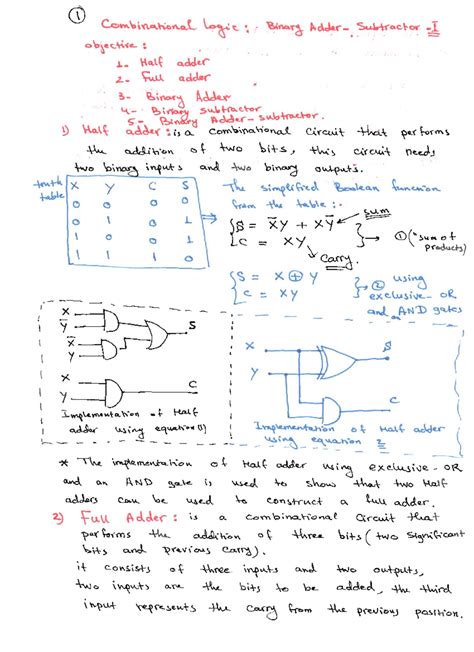 ①
Combinational Logic : Binary Adder - Subtractor - I
objective :
1- Half adder
2- Full adder
3- Binary Adder
4- Binary subtractor
5- Binary Adder-subtractor.
1) Half adder : is a combinational circuit that performs
the addition of two bits, this circuit needs
two binary inputs and two binary outputs.
truth table
X Y C S
0 0 0 0
0 1 0 1
1 0 0 1
1 1 1 0
The simplified Boolean function
from the table :-
S = X̅Y + XY̅ sum
C = XY Carry.
① ("sum of products)
S = X ⊕ Y
C = XY
② using
exclusive-OR
and AND gates
X
Y̅
X̅
Y
S
X
Y
C
Implementation of Half
adder using equation (1)
X
Y
S
C
Implementation of Half adder
using equation 2
* The implementation of Half adder using exclusive-OR
and an AND gate is used to show that two Half
adders can be used to construct a full adder.
2) Full Adder : is a combinational Circuit that
performs the addition of three bits (two significant
bits and previous carry).
it consists of three inputs and two outputs,
two inputs are the bits to be added, the third
input represents the Carry from the previous position.